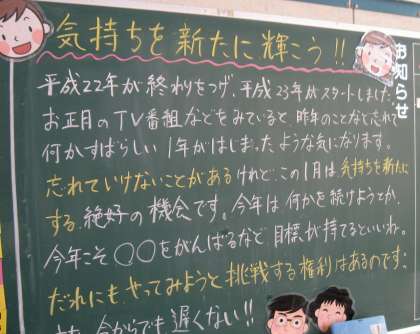 気持ちを新たに輝こう!!
お知らせ
平成22年が終わりをつげ、平成23年がスタートしました。
お正月のTV番組などをみていると、昨年のことなど忘れて
何かすばらしい1年がはじまったような気になります。
忘れていけないことがあるけれど、この1月は、気持ちを新たに
する絶好の機会です。今年は何かを続けようとか、
今年こそ〇〇をがんばるなど目標が持てるといいね。
だれにも、やってみようと挑戦する権利はあるのです。
今からでも遅くない!!